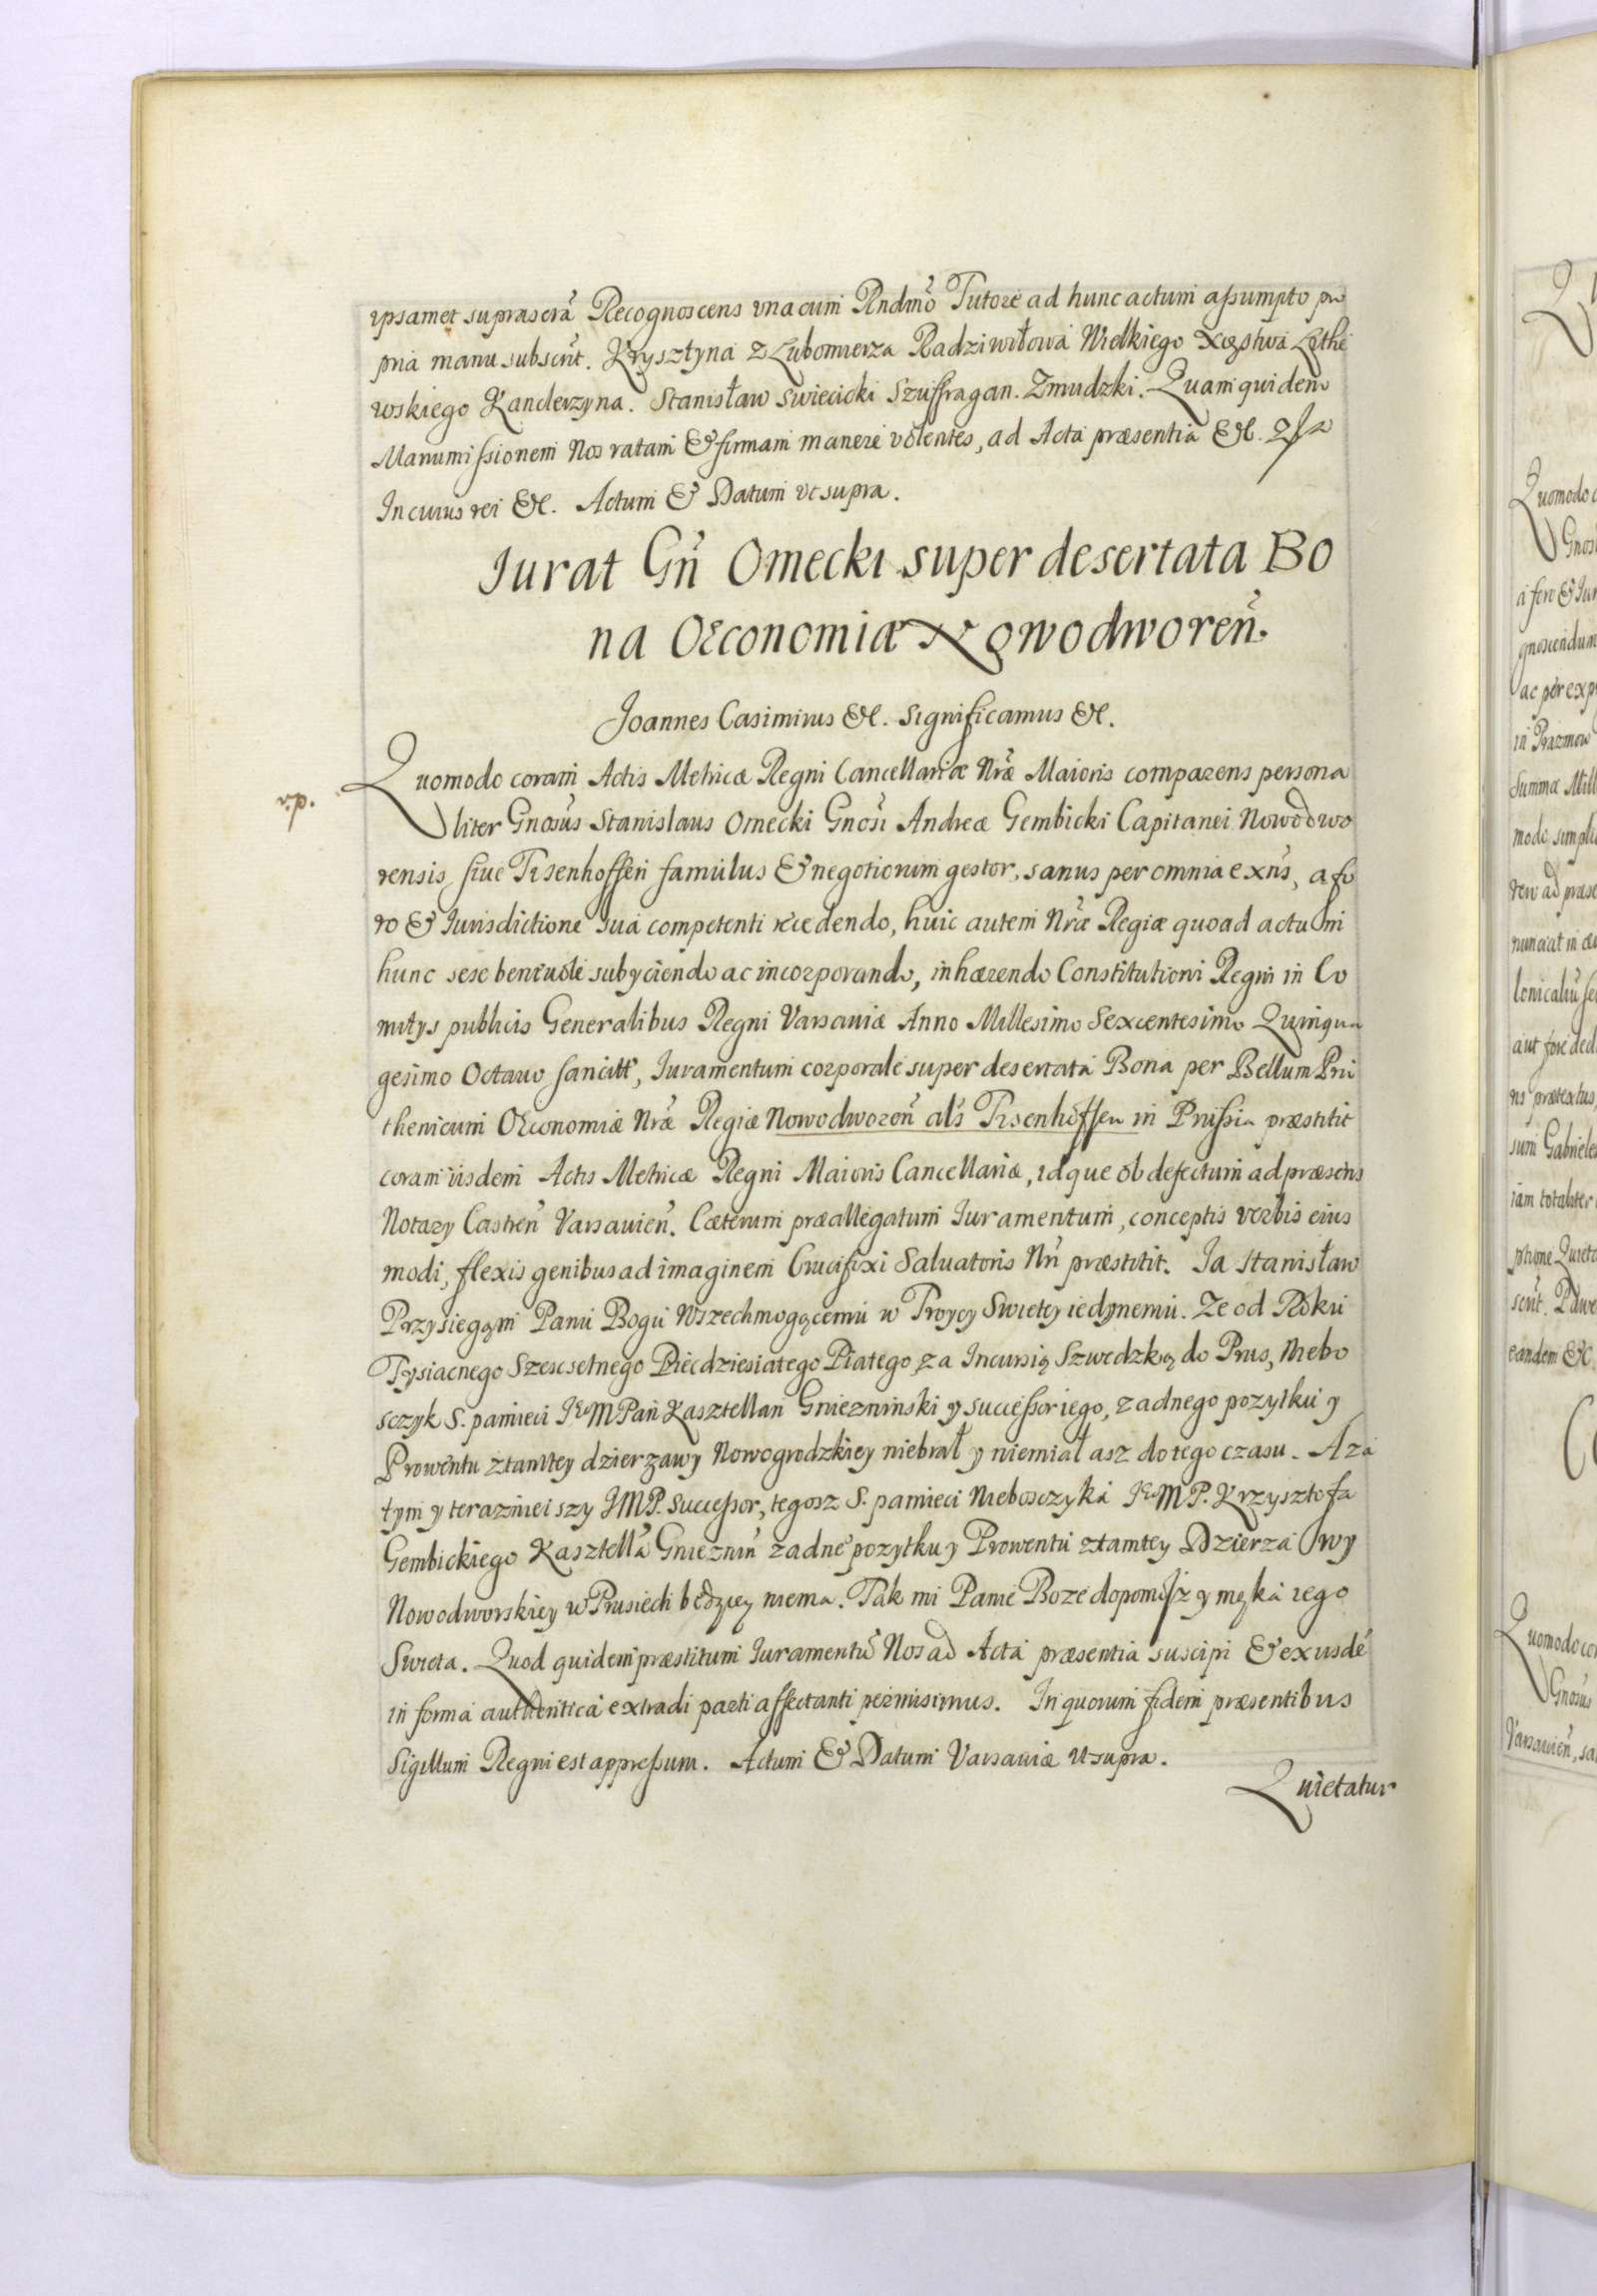 ipsamet suprascra᷃ Recognoscens vnacum Rndmo᷃ Tutore ad hunc actum assumpto pro
pria manu subscrit. Krysztyna z Lubomierza Radziwiłowa Wielkiego Xięstwa Lithe
wskiego Kanclerzyna. Stanisław Swiecicki Szuffragan. Zmudzki. Quam quidem
Manumissionem Nos ratam & firmam manere volentes, ad Acta præsentia &c.
In cuius rei &c. Actum & Datum vt supra.
Iurat Gn̄ Omecki super desertata Bo
na Oeconomiæ Nowodworen̄.
Joannes Casimirus &c. Significamus &c.
v.p.
Quomodo coram Actis Metricæ Regni Cancellariæ Nræ Maioris comparens persona
liter Gnosus Stanislaus Omecki Gnosi Andreæ Gembicki Capitanei Nowodwo
rensis siue Tisenhoffen famulus & negotiorum gestor, sanus per omnia exn̄s, a fo
ro & Iurisdictione sua competenti recedendo, huic autem Nræ Regiæ quoad actum
hunc sese beniuole subyciendo ac incorporando, inhærendo Constitutioni Regni in Co
mitys publicis Generalibus Regni Varsauiæ Anno Millesimo Sexcentesimo Quinqua
gesimo Octauo sancitæ, Iuramentum corporale super desertata Bona per Bellum Pru
thenicum Oeconomiæ Nræ Regiæ Nowodworen̄ als Tisenhoffen in Prussia præstitit
coram iisdem Actis Metricæ Regni Maioris Cancellariæ, idque ob defectum ad præsens
Notary Castren̄ Varsauien̄. Cæterum præallegatum Iuramentum, conceptis verbis eius
modi, flexis genibus ad imaginem Crucifixi Saluatoris Nri præstitit. Ja Stanisław
Przysiegąm Panu Bogu Wszechmogącemu w Troycy Swietey iedynemu. Ze od Roku
Tysiacnego Szescsetnego Piecdziesiatego Piatego za Incursią Szwedzką do Prus, Niebo
sczyk S. pamieci Jᵒ M Pan Kasztellan Gniezninski y successor iego, zadnego pozytku y
Prowentu ztamtey dzierzawy Nowogrodzkiey niebrał y niemiał asz do tego czasu. A za
tym y teraznieiszy JMP. Successor, tegosz S. pamieci Nieboszczyka Jᵒ M P. Krzysztofa
Gembickiego Kasztella᷃ Gniezniń zadne᷃ pozytku y Prowentu ztamtey Dzierzawy
Nowodworskiey w Prusiech będącey niema. Tak mi Panie Boze dopomosz y męka iego
Swieta. Quod quidem præstitum Iuramentū Nos ad Acta præsentia suscipi & ex iisdē
in forma authentica extradi parti affectanti permisimus. In quorum fidem præsentibus
Sigillum Regni est appressum. Actum & Datum Varsauiæ ut supra.
Quietatur